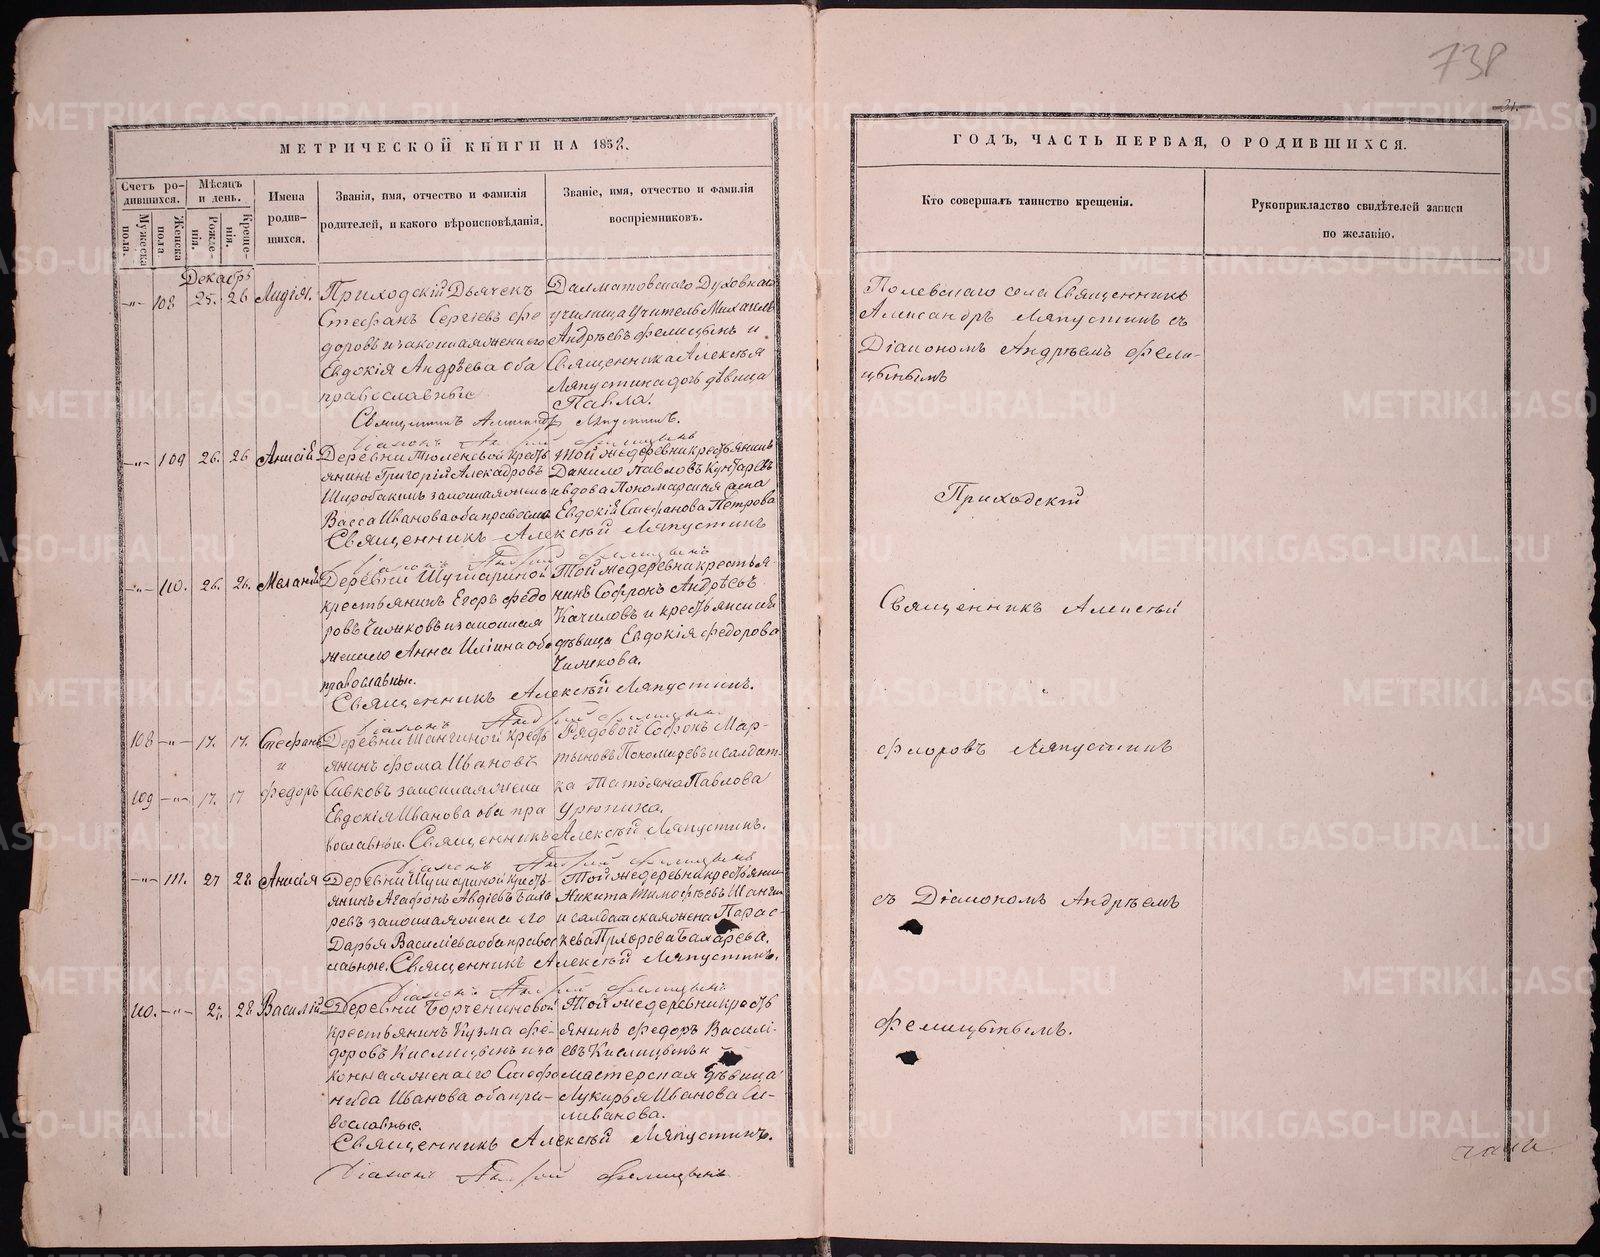 738
МЕТРИЧЕСКОЙ КНИГИ НА 1858.
Счетъ родившихся.
Мужеска пола.
Женска пола
Мѣсяцъ и день.
Рожденія.
Крещенія.
Имена родившихся.
Званія, имя, отчество и фамилія
родителей, и какого вѣроисповѣданія.
Званіе, имя, отчество и фамилія
воспріемниковъ.
Декабрь
108 25. 26 Лидія.
Приходскій Дьячекъ
Стефанъ Сергѣевъ Фе
доровъ и законная жена его
Евдокія Андрѣева оба
православные
Далматовскаго Духовнаго
училища Учитель Михаилъ
Андрѣевъ Фелицынъ и
Священника Алексѣя
Ляпустина дочь дѣвица
Павла.
Священникъ Александръ Ляпустинъ.
Діаконъ Андрей Фелицынъ
109 26. 26 Анисій
Деревни Полевской крестъ
янинъ Григорій
законная жена
Васса Иванова оба правосла
Той же деревни крестьянинъ
Данило Павловъ
вдова Пономарская жена
Евдокія Стефанова Петрова
Священникъ Алексѣй Ляпустинъ
Діаконъ Андрей Фелицынъ
110. 26. 26. Меланія
Деревни Шушариной
крестьянинъ Егоръ Федо
ровъ Чижковъ и законная
жена его Анна Ильина оба
православные.
Той же деревни крестья-
нинъ Софронъ Андрѣевъ
Качиловъ и крестьянская
дѣвица Евдокія Федорова
Чижкова.
Священникъ Алексѣй Ляпустинъ.
Діаконъ Андрей Фелицынъ
108 17. 17. Стефанъ
и
109 17. 17 Федоръ
Деревни Шангиной крестъ
янинъ Фома Ивановъ
Сивковъ законная жена
Евдокія Иванова оба пра
вославные.
Рядовой Софонъ Мар-
тыновъ Пономаревъ и солдат-
ка Татьяна Павлова
Урюпина.
Священникъ Алексѣй Ляпустинъ.
Діаконъ Андрей Фелицынъ
111. 27 28 Анисія
Деревни Шушариной крестъ-
янинъ Агафонъ Авдѣевъ Баха
ревъ законная жена его
Дарья Васильева оба право
славные.
Той же деревни крестьянинъ
Никита Тимофѣевъ Шанги
и солдатская жена Парас-
кева Прохорова Бахарева.
Священникъ Алексѣй Ляпустинъ.
Діаконъ Андрей Фелицынъ
110. 27. 28 Василій
Деревни Борчениновой
крестьянинъ Кузма Фе-
доровъ Кислицынъ и за
конная жена его Стефа
нида Иванова оба пра-
вославные.
Той же деревни крестъ
янинъ Федоръ Василі-
евъ Кислицынъ и
мастерская дѣвица
Лукирья Иванова Се-
ливанова.
Священникъ Алексѣй Ляпустинъ.
Діаконъ Андрей Фелицынъ
ГОДЪ, ЧАСТЬ ПЕРВАЯ, О РОДИВШИХСЯ.
Кто совершалъ таинство крещенія.
Рукоприкладство свидѣтелей записи
по желанію.
Полевскаго села Священникъ
Александръ Ляпустинъ съ
Діакономъ Андрѣемъ Фели-
цынымъ
Приходскій
Священникъ Алексѣй
Флоровъ Ляпустинъ
съ Діакономъ Андрѣемъ
Фелицынымъ.
METRIKI.GASO-URAL.RU